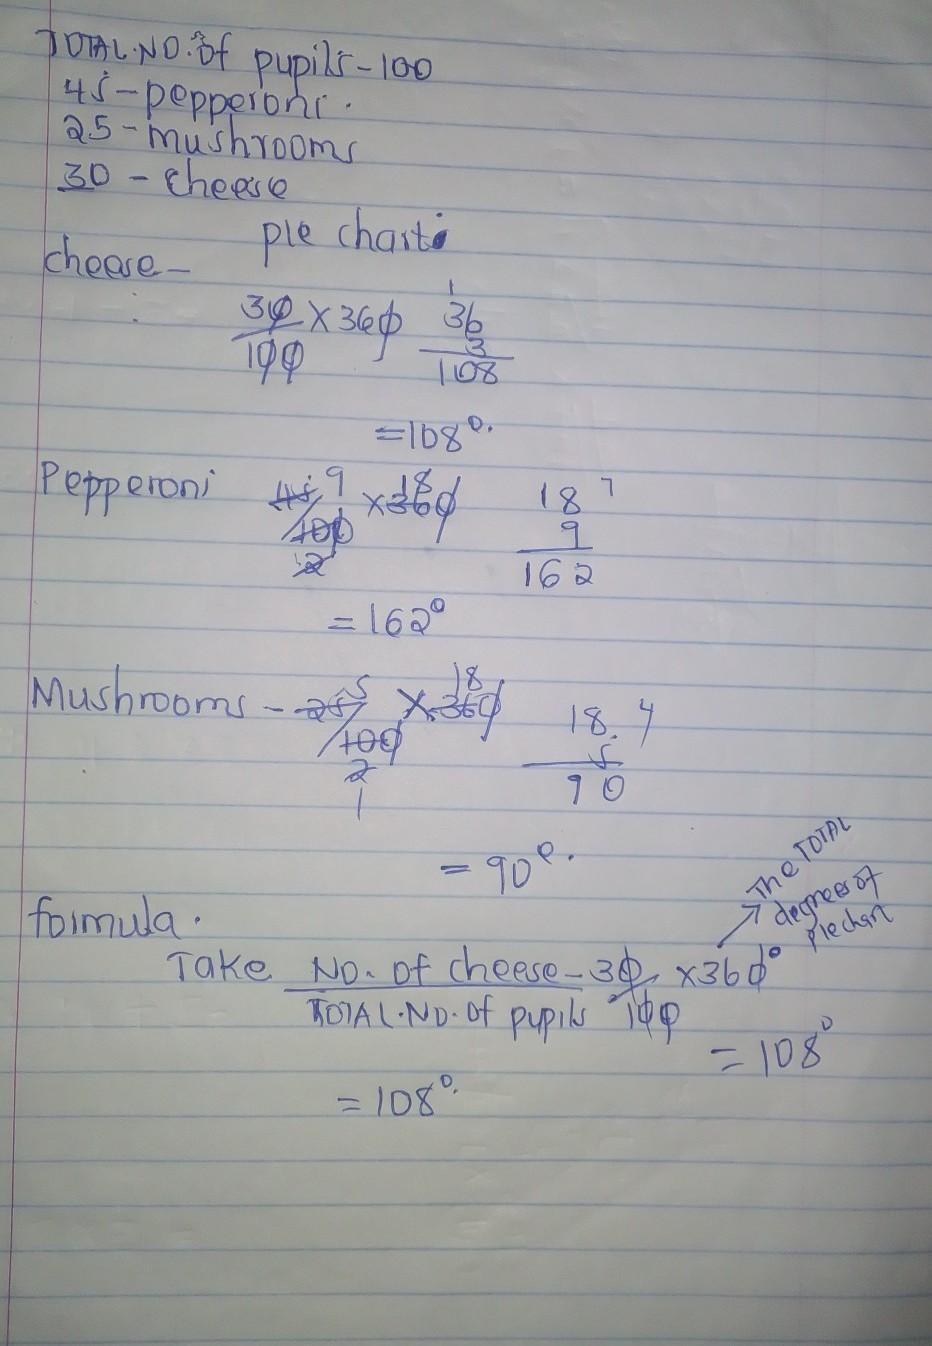 TOTAL.NO.of pupils-100
45-pepperoni.
25-mushrooms
30-cheese
pie chart.
cheese-
30/100 x 360
1
36
3
108
=108°.
Pepperoni 45/100 x 360
9 18
2
18 7
9
162
=162°
Mushrooms - 25/100 x 360
5 18
2
1
18. 4
5
90
=90°.
The TOTAL
degrees of
pie chart
formula.
Take No. of cheese-30 x360°
TOTAL.NO.of pupils 100
=108°
=108°.